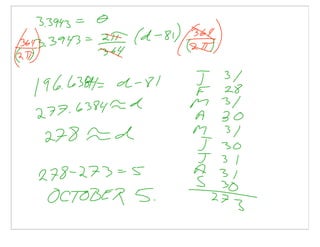 3.3943 = θ
(364/2π) 3.3943 = 2π/364 (d-81) (364/2π)
196.6384 = d-81
277.6384 ≈ d
278 ≈ d
278-273 = 5
OCTOBER 5.
J 31
F 28
M 31
A 30
M 31
J 30
J 31
A 31
S 30
273